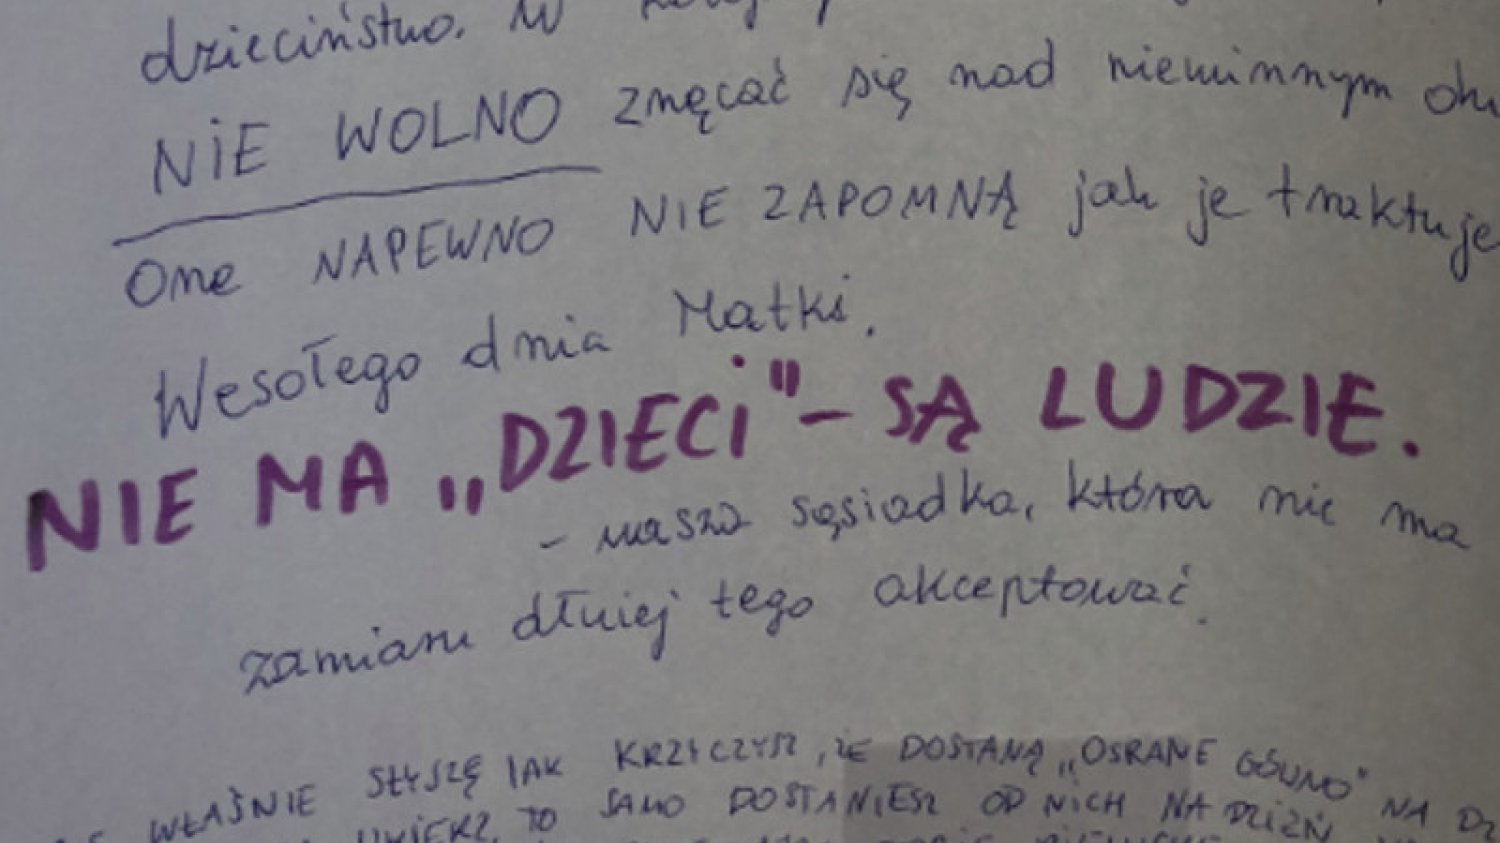 dzieciństwo. W
NIE WOLNO znęcać się nad niewinnym
One NAPEWNO NIE ZAPOMNĄ jak je traktuje
Wesołego dnia Matki.
NIE MA „DZIECI" - SĄ LUDZIE.
- wasza sąsiadka, która nie ma
zamiaru dłużej tego akceptować.
WŁAŚNIE SŁYSZĘ JAK KRZYCZYSZ, ŻE DOSTANĄ „OSRANE GÓWNO" NA
TO SAMO DOSTANIESZ OD NICH NA DZIEŃ